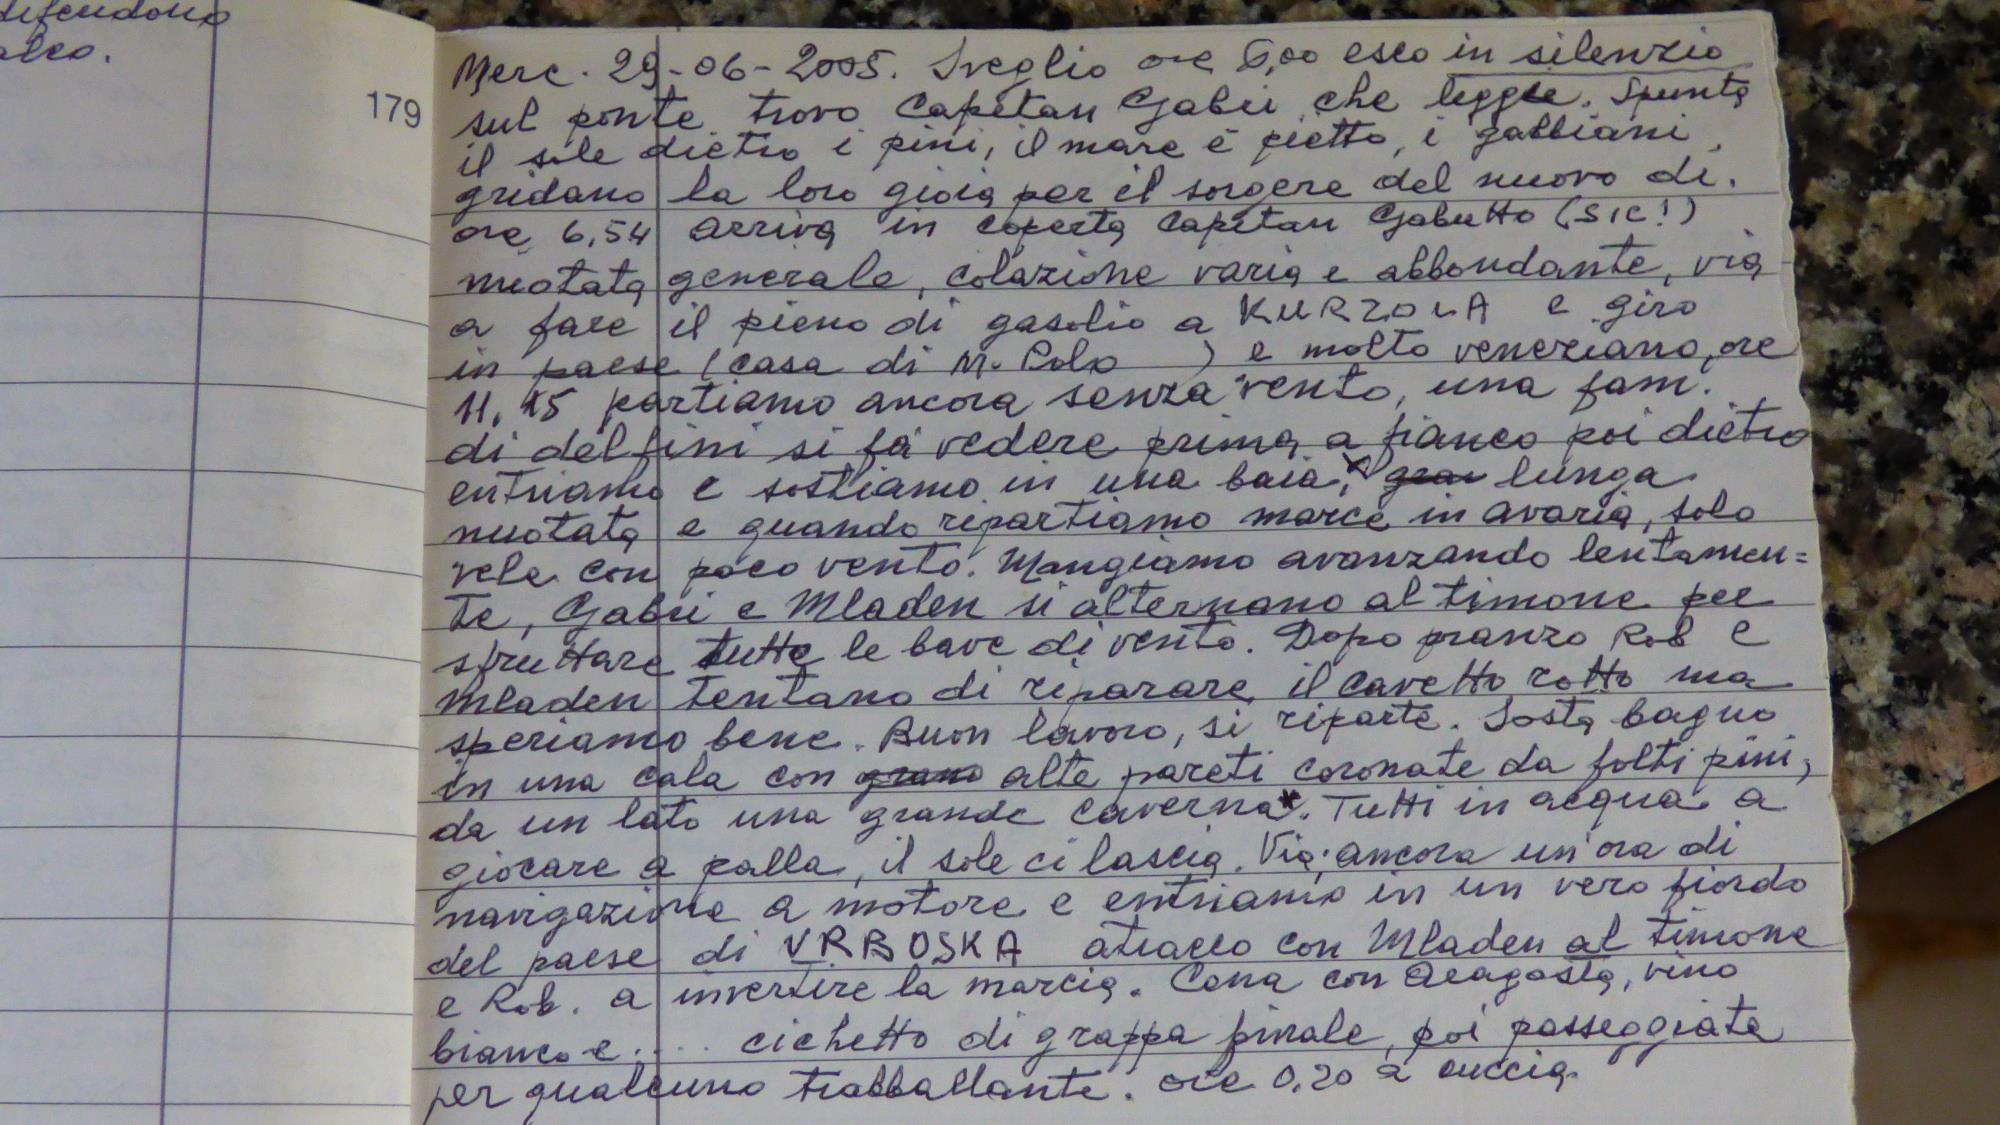 difendono
179
Merc. 29-06-2005. Sveglio ore 6,00 esco in silenzio
sul ponte trovo Capitan Gabri che legge. Spunta
il sole dietro i pini, il mare è pietto, i gabbiani
gridano la loro gioia per il sorgere del nuovo dì.
ore 6,54 arriva in coperta Capitan Gabutto (SIC!)
nuotata generale, colazione varia e abbondante, via
a fare il pieno di gasolio a KURZOLA e giro
in paese (casa di M. Polo ) e molto veneziano, ore
11,45 partiamo ancora senza vento, una fam.
di delfini si fà vedere prima a fianco poi dietro
entriamo e sostiamo in una baia, lunga
nuotata e quando ripartiamo marce in avaria, solo
vele con poco vento. Mangiamo avanzando lentamen=
te, Gabri e Mladen si alternano al timone per
sfruttare tutte le bave di vento. Dopo pranzo Rob e
Mladen tentano di riparare il cavetto rotto ma
speriamo bene. Buon lavoro, si riparte. Sosta bagno
in una cala con alte pareti coronate da folti pini,
da un lato una grande caverna*. Tutti in acqua a
giocare a palla, il sole ci lascia. Via, ancora un'ora di
navigazione a motore e entriamo in un vero fiordo
del paese di VRBOSKA attracco con Mladen al timone
e Rob. a invertire la marcia. Cena con aragosta, vino
bianco e.... cichetto di grappa finale, poi passeggiata
per qualcuno traballante. ore 0,20 a cuccia